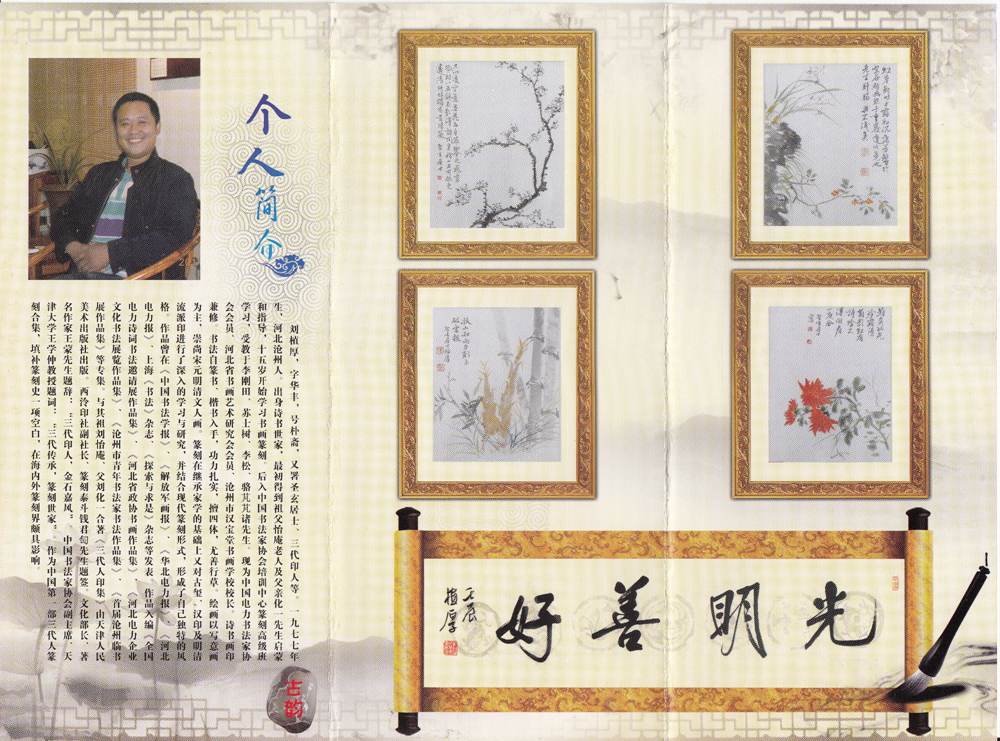 个人简介
刘植厚，字华丰，号朴斋，又署圣玄居士、三代印人等。一九七七年
生，河北沧州人，出身诗书世家，最初得到祖父怡庵老人及父亲化一先生启蒙
和指导，十五岁开始学习书画篆刻。后入中国书法家协会培训中心篆刻高级班
学习，受教于李刚田、苏士树、李松、骆芃芃诸先生。现为中国电力书法家协
会会员、河北省书画艺术研究会会员、沧州市汉宝堂书画学校校长。诗书画印
兼修，书法自篆书、楷书入手，功力扎实，擅四体，尤善行草。绘画以写意画
为主，崇尚宋元明清文人画。篆刻在继承家学的基础上又对古玺、汉印及明清
流派印进行了深入的学习与研究，并结合现代篆刻形式，形成了自己独特的风
格。作品曾在《中国书法学报》、《解放军画报》、《华北电力报》、《河北
电力报》、上海《书法》杂志、《探索与求是》杂志等发表。作品入编《全国
电力诗词书法邀请展作品集》、《河北省政协书画作品集》、《河北电力企业
文化书法展览作品集》、《沧州市青年书法家书法作品集》、《首届沧州临书
展作品集》等专集。与其祖刘怡庵、父刘化一合著《三代人印集》由天津人民
美术出版社出版。西泠印社副社长、篆刻泰斗钱君匋先生题签，文化部长、著
名作家王蒙先生题辞：“三代印人，金石嘉风”。中国书法家协会副主席、天
津大学王学仲教授题词：“三代传承，篆刻世家”。作为中国第一部三代人篆
刻合集，填补篆刻史一项空白，在海内外篆刻界颇具影响。
古韵
光明善好
壬辰
植厚